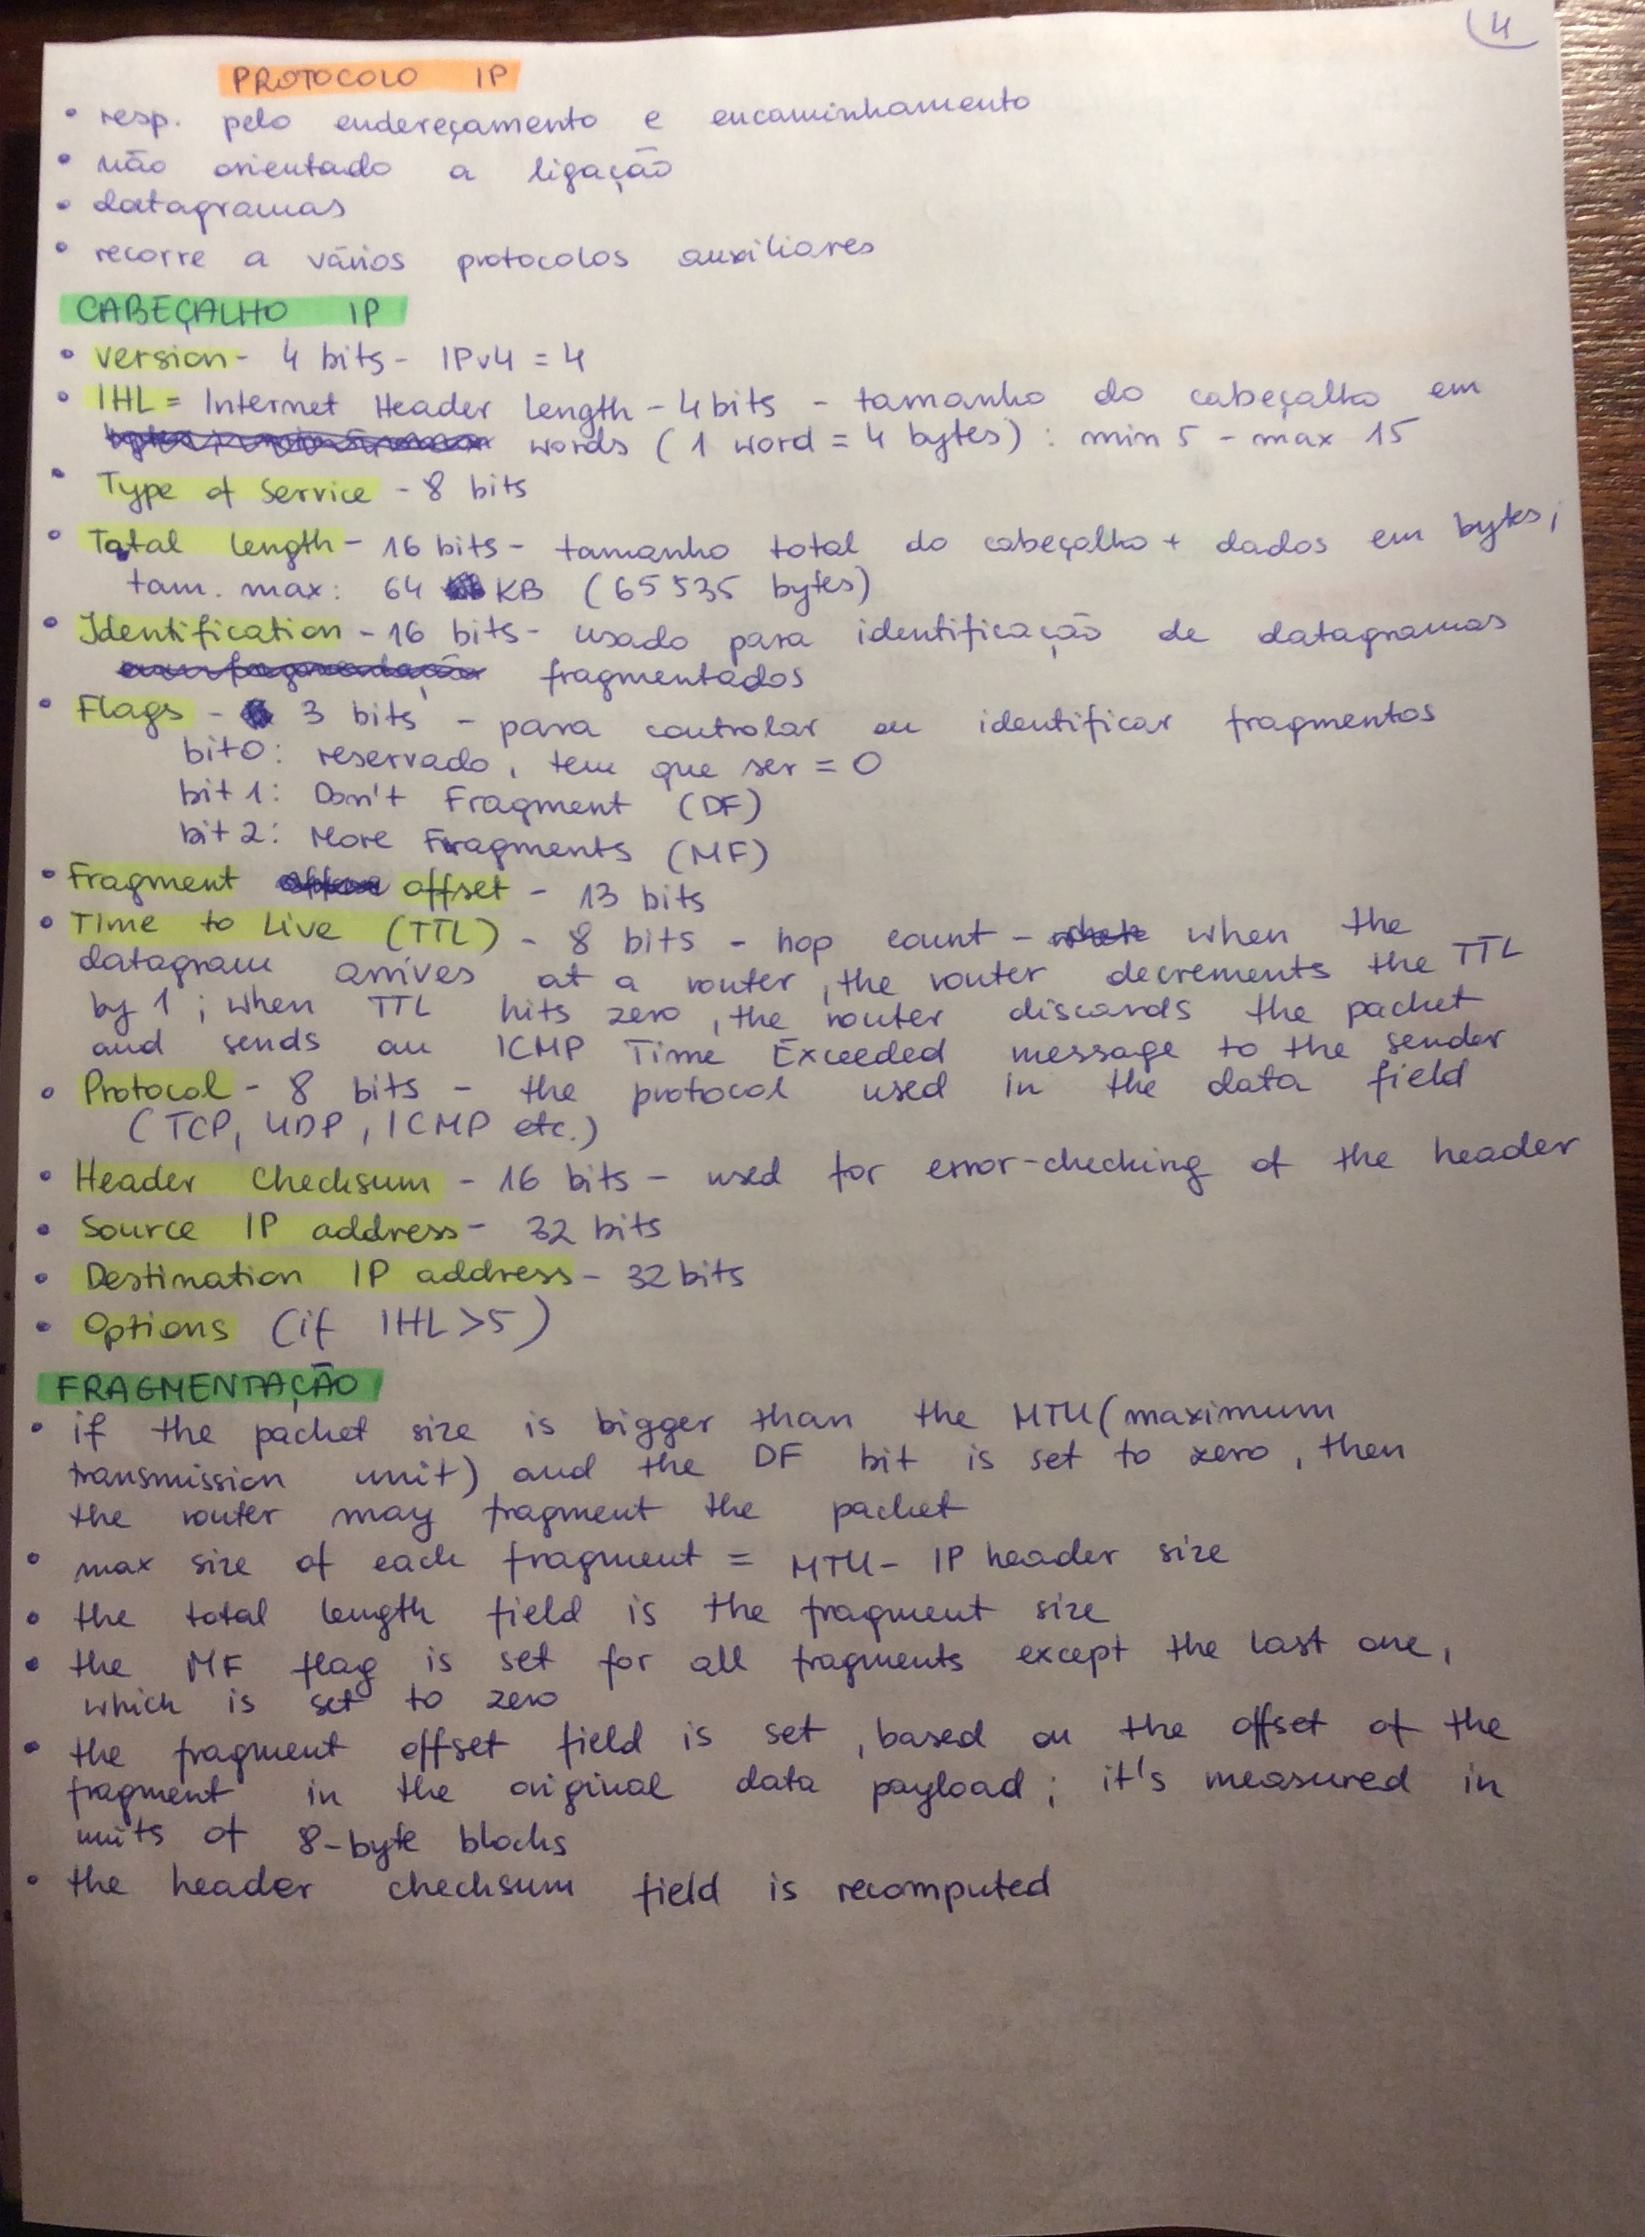 4
PROTOCOLO IP
• resp. pelo endereçamento e encaminhamento
• não orientado a ligação
• datagramas
• recorre a vários protocolos auxiliares
CABEÇALHO IP
• version - 4 bits - IPv4 = 4
• IHL = Internet Header Length - 4 bits - tamanho do cabeçalho em
words (1 word = 4 bytes) : min 5 - max 15
• Type of Service - 8 bits
• Total length - 16 bits - tamanho total do cabeçalho + dados em bytes;
tam. max: 64 KB (65535 bytes)
• Identification - 16 bits - usado para identificação de datagramas
fragmentados
• Flags - 3 bits - para controlar ou identificar fragmentos
bit 0: reservado, tem que ser = 0
bit 1: Don't Fragment (DF)
bit 2: More Fragments (MF)
• Fragment offset - 13 bits
• Time to Live (TTL) - 8 bits - hop count - when the
datagram arrives at a router, the router decrements the TTL
by 1; when TTL hits zero, the router discards the packet
and sends an ICMP Time Exceeded message to the sender
• Protocol - 8 bits - the protocol used in the data field
(TCP, UDP, ICMP etc.)
• Header Checksum - 16 bits - used for error-checking of the header
• Source IP address - 32 bits
• Destination IP address - 32 bits
• Options (if IHL > 5)
FRAGMENTAÇÃO
• if the packet size is bigger than the MTU (maximum
transmission unit) and the DF bit is set to zero, then
the router may fragment the packet
• max size of each fragment = MTU - IP header size
• the total length field is the fragment size
• the MF flag is set for all fragments except the last one,
which is set to zero
• the fragment offset field is set, based on the offset of the
fragment in the original data payload; it's measured in
units of 8-byte blocks
• the header checksum field is recomputed